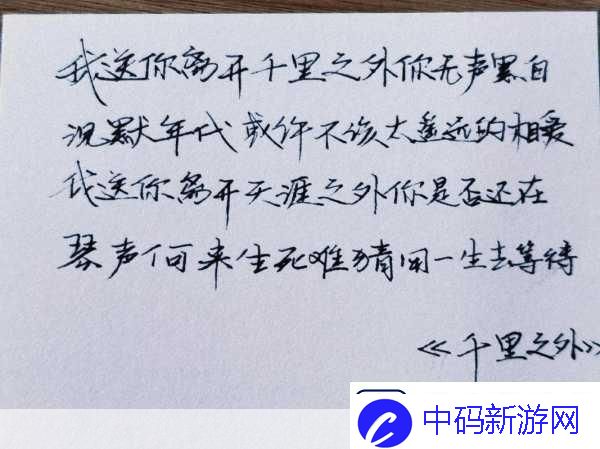 我送你离开千里之外你无声黑白
沉默年代或许不该太遥远的相爱
我送你离开天涯之外你是否还在
琴声何来生死难猜用一生去等待
《千里之外》
中码新游网